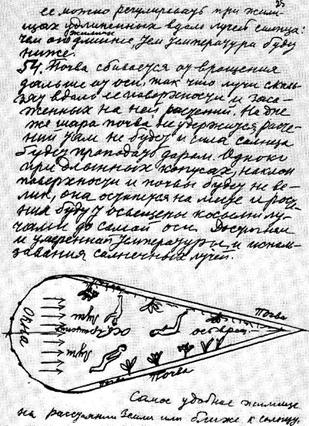 ее можно регулировать при жили-
щах удлиненных вдоль лучей солнца:
чем оно длиннее, тем температура будет
ниже.
54. Почва сбивается от вращения
дальше от оси, так что лучи сколь-
зят вдоль ее поверхности и заса-
женных на ней растений. На дне
же шара почва не удержится расте-
ний там не будет и сила солнца
будет пропадать даром. Однако
при длинных конусах, наклон
поверхности и почвы будет не ве-
лик, она останется на месте и рас-
тения будут освещены косыми лу-
чами до самой оси. Достигаем
и умеренной температуры и исполь-
зования солнечных лучей.
Окна
Лучи
Лучи
Почва
Почва
Самое удобное жилище
на расстоянии Земли или ближе к солнцу,